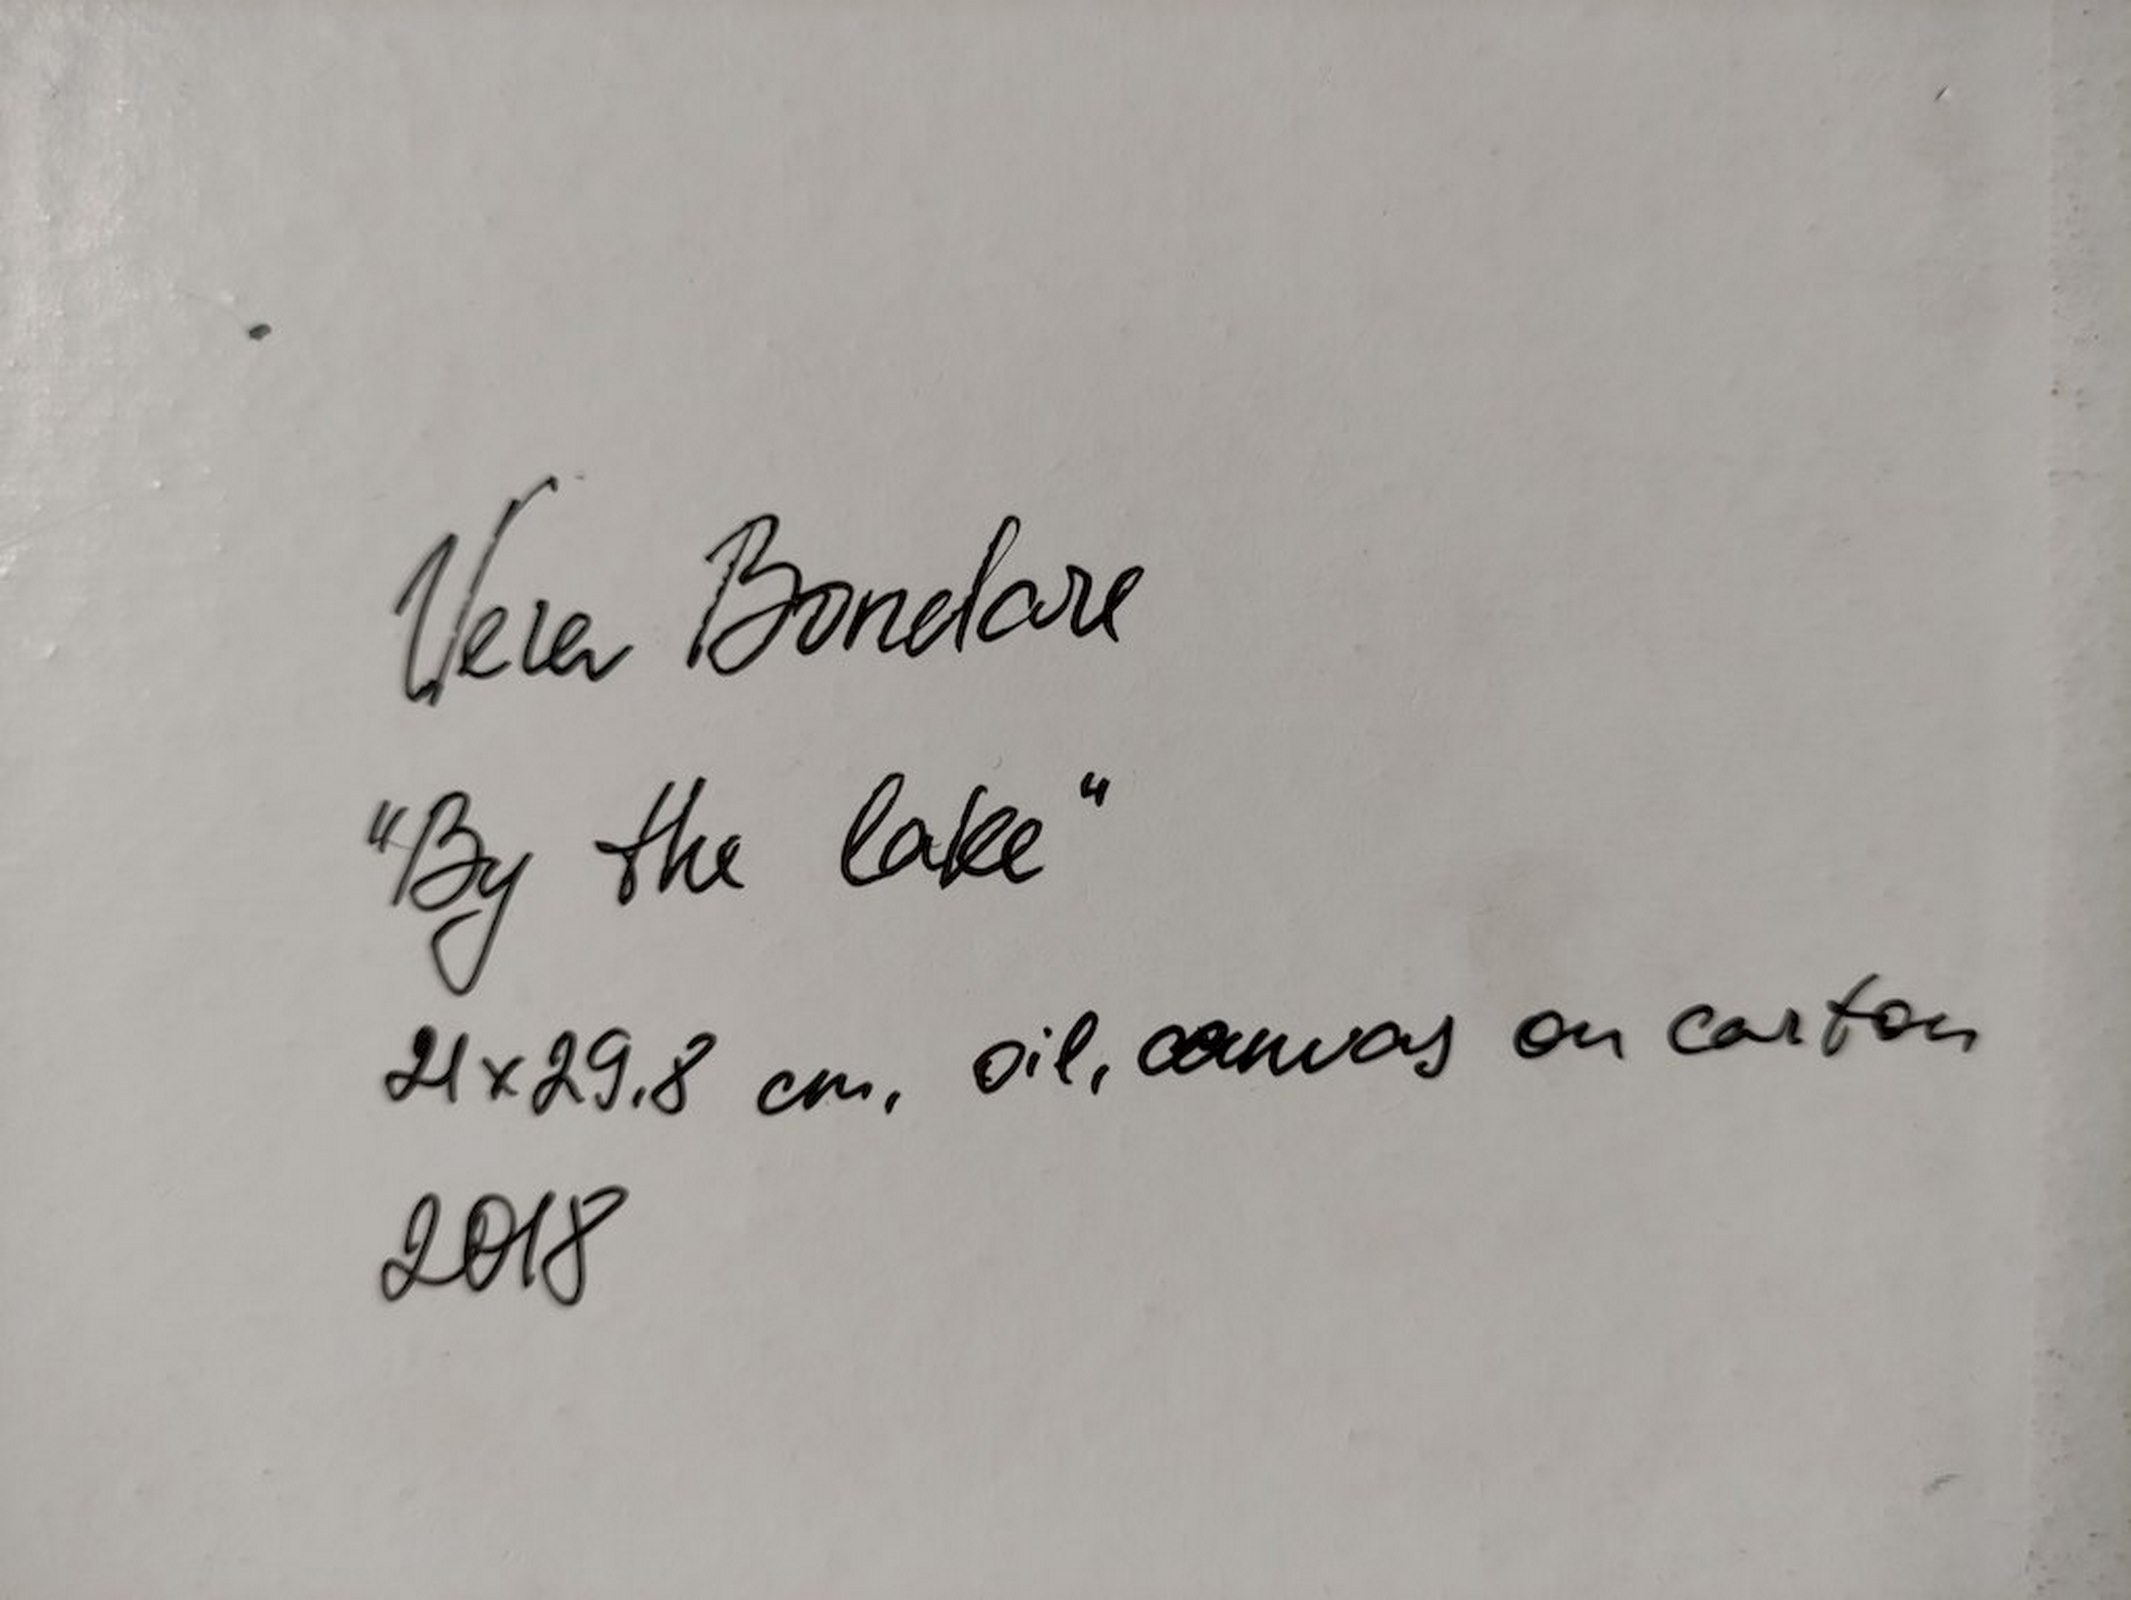 Vera Bondare
"By the lake"
21x29.8 cm, oil, canvas on carton
2018